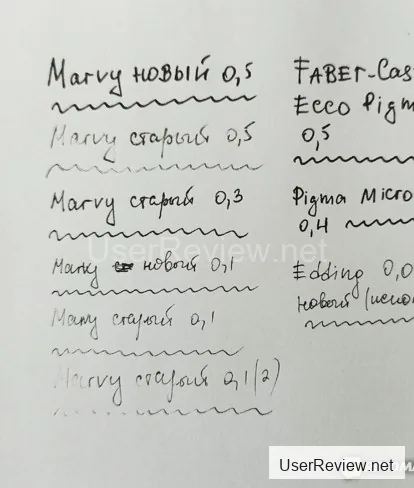 Marvy новый 0,5
Marvy старый 0,5
Marvy старый 0,3
Marvy новый 0,1
Marvy старый 0,1
Marvy старый 0,1 (2)
FABER-Cas
Ecco Pigm
0,5
Pigma Micro
0,4
Edding 0,0
новый (испо
UserReview.net
UserReview.net